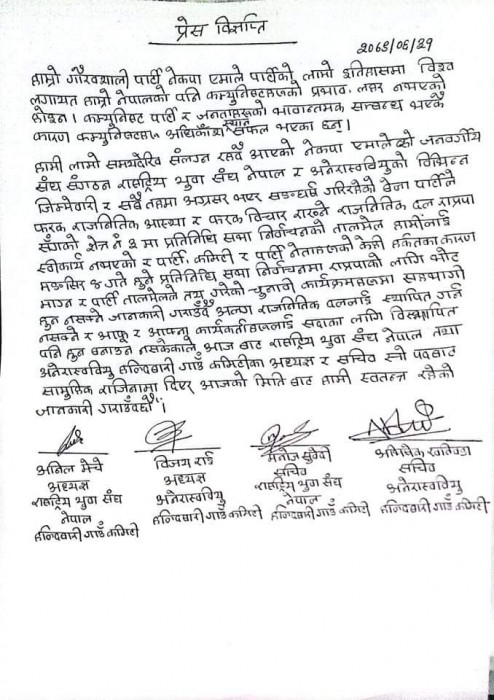 प्रेस विज्ञप्ति
२०७९/०६/२९
हाम्रो गौरवशाली पार्टी नेकपा एमाले पार्टीको लामो इतिहासमा विश्व
लगायत हाम्रो नेपालको पनि कम्युनिष्टहरुको प्रभाव, लहर नभएको
होइन। कम्युनिष्ट पार्टी र जनताहरुको भावानात्मक सम्बन्ध भएकै
कारण कम्युनिष्टहरु अधिकांश स्थान सफल भएका छन्।
हामी लामो समयदेखि संलग्न रहँदै आएको नेकपा एमालेको जनवर्गीय
संघ संगठन राष्ट्रिय युवा संघ नेपाल र अनेरास्ववियुको विभिन्न
जिम्मेवारी र सबै तहमा अग्रसर भएर सङघर्ष गरिरहेको बेला पार्टीले
फरक राजनितिक आस्था र फरक विचार राख्ने राजनितिक दल राप्रपा
सँगको क्षेत्र नं २ मा प्रतिनिधि सभा निर्वाचनको तालमेल हामीलाई
स्वीकार्य नभएको र पार्टी, कमिटी र पार्टी नेताहरुको केही हर्कतका कारण
मङसिर ४ गते हुने प्रतिनिधि सभा निर्वाचनमा राप्रपाको लागि भोट
माग्न र पार्टी तालमेलले तय गरेको चुनावी कार्यक्रमहरुमा सहभागी
हुन नसक्ने जानकारी गराउँदै अलग राजनितिक दललाई स्थापित गर्न
नसक्ने र आफू र आफ्ना कार्यकर्ताहरुलाई सदाका लागि विस्थापित
पनि हुन बनाउन नसकेकाले आज बाट राष्ट्रिय युवा संघ नेपाल तथा
अनेरास्ववियु हल्दिवारी गाउँ कमिटीका अध्यक्ष र सचिव सो पदबाट
सामुहिक राजिनामा दिएर आजको मिति बाट हामी स्वतन्त्र रहेको
जानकारी गराउँदछौं।
अनिल मेचे
अध्यक्ष
राष्ट्रिय युवा संघ
नेपाल
हल्दिवारी गाउँ कमिटी
विजय राई
अध्यक्ष
अनेरास्ववियु
हल्दिवारी गाउँ कमिटी
मनोज सुवेदी
सचिव
राष्ट्रिय युवा संघ
नेपाल
हल्दिवारी गाउँ कमिटी
अभिषेक
सचिव
अनेरास्ववियु
हल्दिवारी गाउँ कमिटी